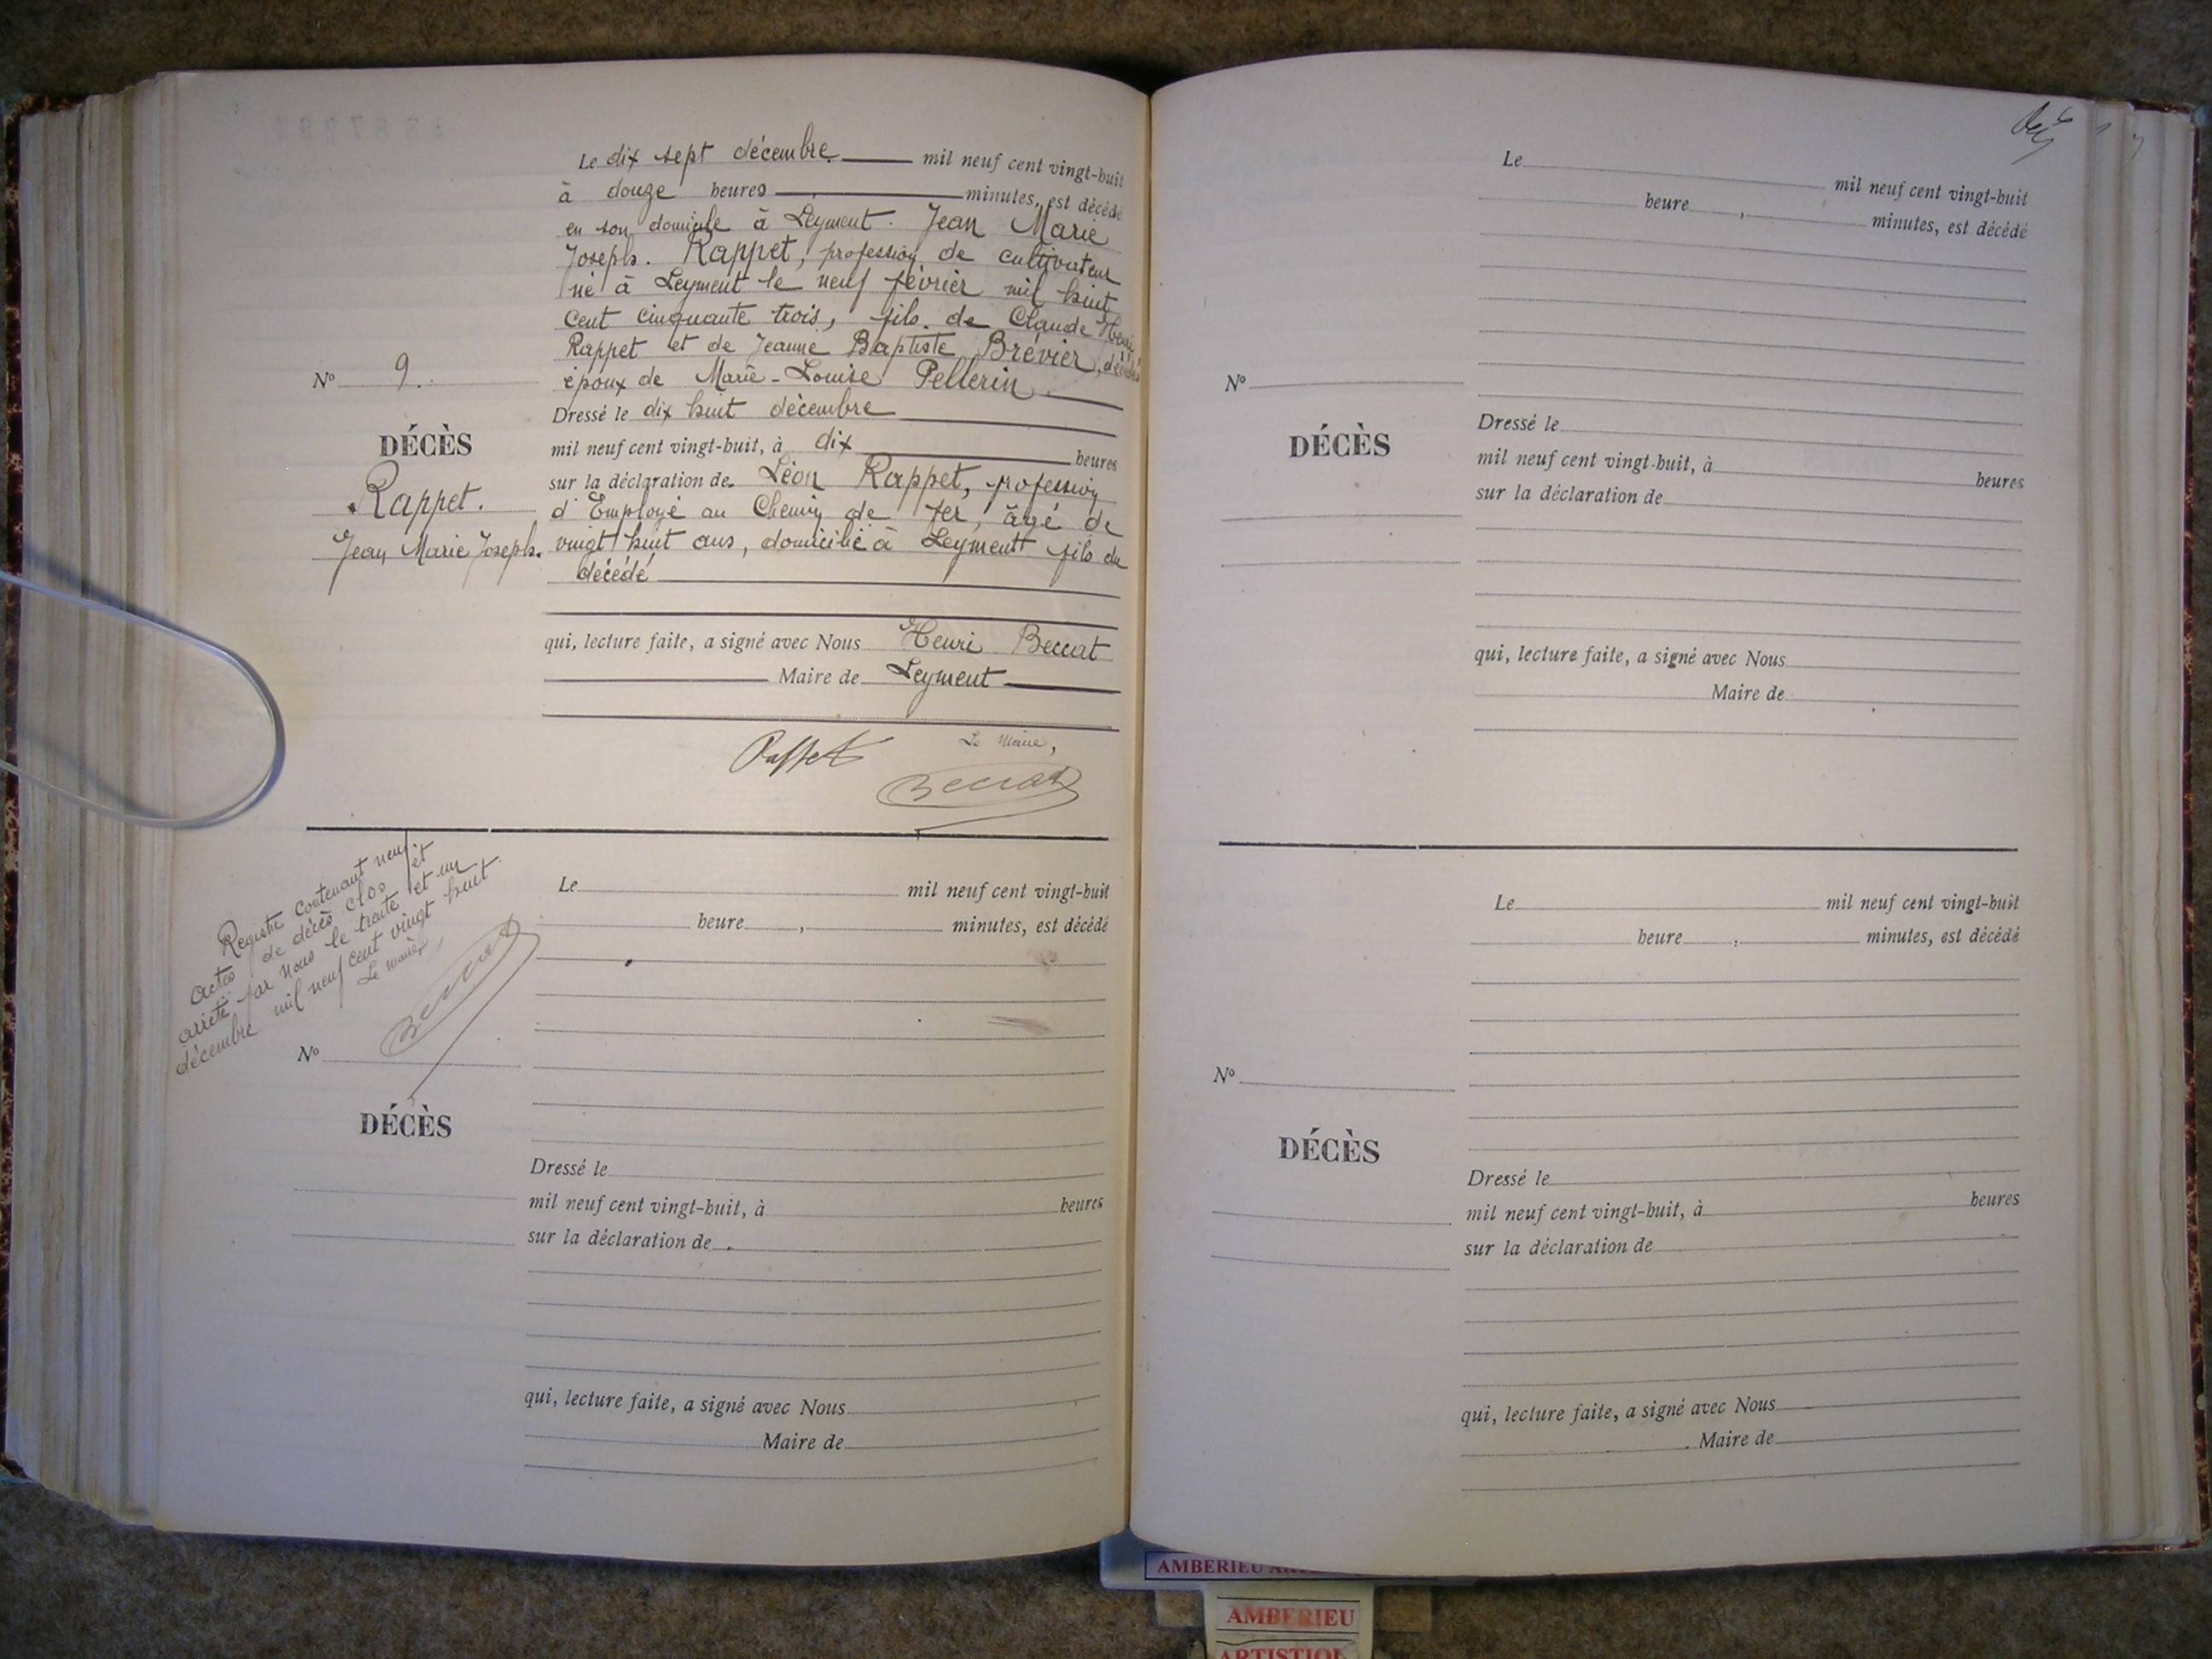 Le dix sept décembre mil neuf cent vingt-huit
à douze heures , minutes, est décédé
en son domicile à Leyment. Jean Marie
Joseph. Rappet, profession de cultivateur
né à Leyment le neuf février mil huit
cent cinquante trois, fils de Claude Henri
Rappet et de Jeanne Baptiste Brévier, décédés
époux de Marie-Louise Pellerin
Dressé le dix huit décembre
mil neuf cent vingt-huit, à dix heures
sur la déclaration de Léon Rappet, profession
d'Employé au Chemin de fer, âgé de
vingt huit ans, domicilié à Leyment fils du
décédé
qui, lecture faite, a signé avec Nous Henri Beccat
Maire de Leyment
Rappet
Le Maire,
Beccat
No 9.
DÉCÈS
Rappet.
Jean Marie Joseph.
Registre contenant neuf
actes de décès clos et
arrêté par nous le trente et un
décembre mil neuf cent vingt huit
Le Maire,
Beccat
No
DÉCÈS
Le mil neuf cent vingt-huit
heure , minutes, est décédé
Dressé le
mil neuf cent vingt-huit, à heures
sur la déclaration de
qui, lecture faite, a signé avec Nous
Maire de
Le mil neuf cent vingt-huit
heure , minutes, est décédé
No
DÉCÈS
Dressé le
mil neuf cent vingt-huit, à heures
sur la déclaration de
qui, lecture faite, a signé avec Nous
Maire de
Le mil neuf cent vingt-huit
heure , minutes, est décédé
No
DÉCÈS
Dressé le
mil neuf cent vingt-huit, à heures
sur la déclaration de
qui, lecture faite, a signé avec Nous
Maire de
AMBERIEU
AMBERIEU